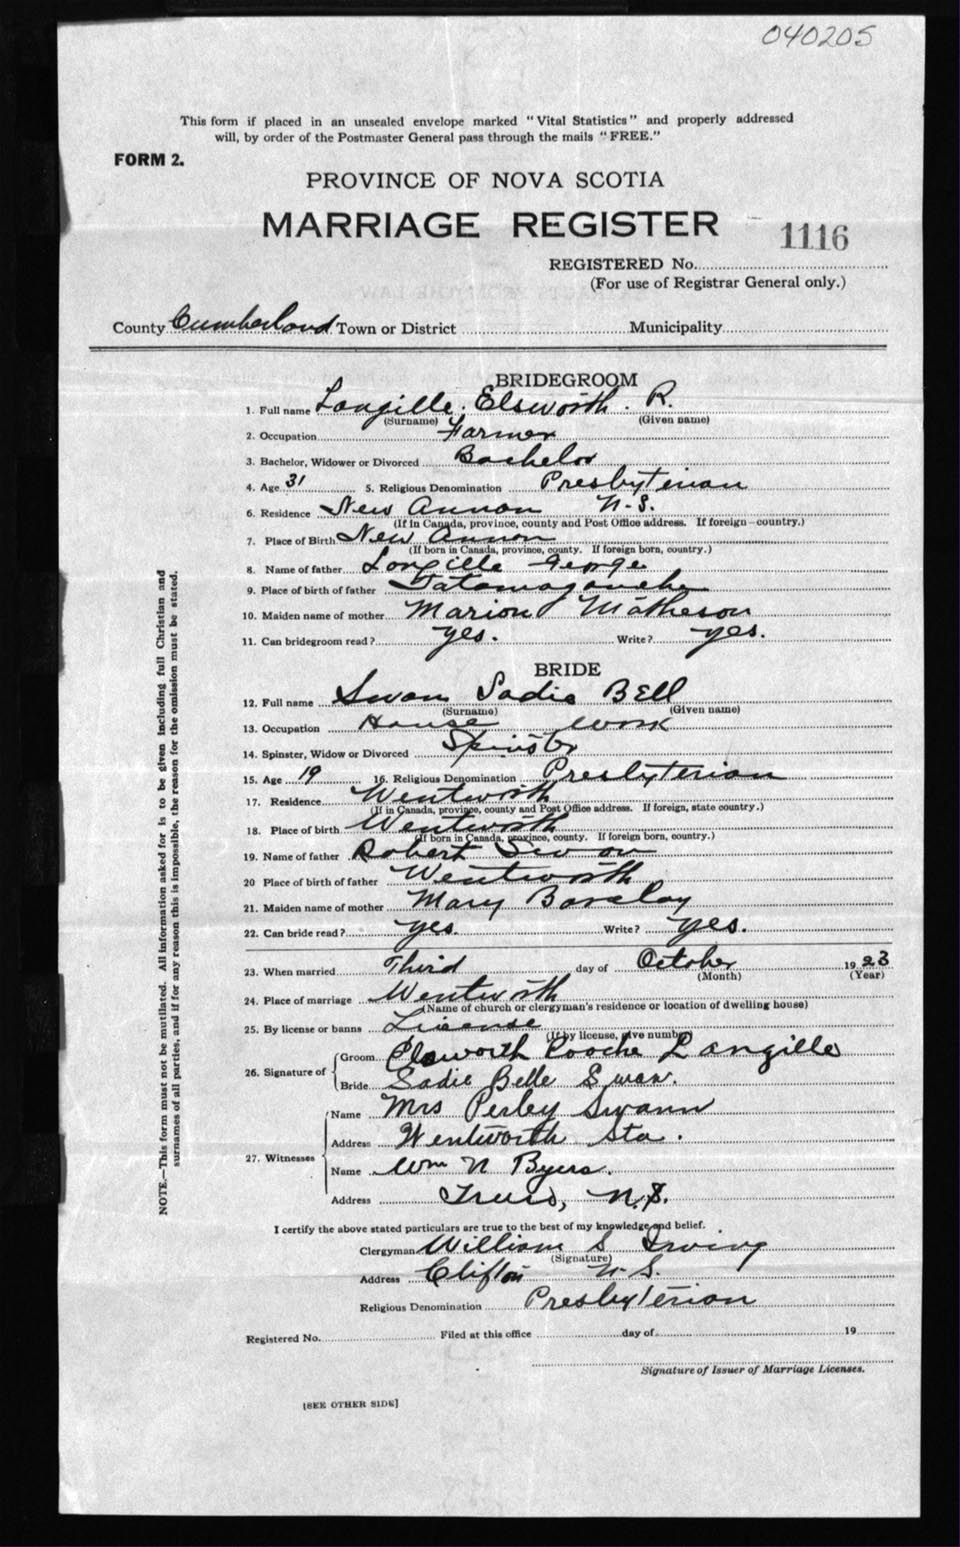 040205
This form if placed in an unsealed envelope marked "Vital Statistics" and properly addressed
will, by order of the Postmaster General pass through the mails "FREE."
FORM 2.
PROVINCE OF NOVA SCOTIA
MARRIAGE REGISTER
1116
REGISTERED No.
(For use of Registrar General only.)
County Cumberland Town or District Municipality
BRIDEGROOM
1. Full name Langille. Elsworth. R.
(Surname) (Given name)
2. Occupation Farmer
3. Bachelor, Widower or Divorced Bachelor
4. Age 31 5. Religious Denomination Presbyterian
6. Residence New Annan N.S.
(If in Canada, province, county and Post Office address. If foreign—country.)
7. Place of Birth New Annan
(If born in Canada, province, county. If foreign born, country.)
8. Name of father Langille George
9. Place of birth of father Tatamagouche
10. Maiden name of mother Marion Matheson
11. Can bridegroom read? yes. Write? yes.
BRIDE
12. Full name Swan Sadie Bell
(Surname) (Given name)
13. Occupation House work
14. Spinster, Widow or Divorced Spinster
15. Age 19 16. Religious Denomination Presbyterian
17. Residence Wentworth
(If in Canada, province, county and Post Office address. If foreign, state country.)
18. Place of birth Wentworth
(If born in Canada, province, county. If foreign born, country.)
19. Name of father Robert Swan
20 Place of birth of father Wentworth
21. Maiden name of mother Mary Barclay
22. Can bride read? yes. Write? yes.
23. When married Third day of October 1923
(Month) (Year)
24. Place of marriage Wentworth
(Name of church or clergyman's residence or location of dwelling house)
25. By license or banns License
(If by license, give number)
26. Signature of Groom Elsworth Roache Langille
Bride Sadie Belle Swan.
27. Witnesses Name Mrs Perley Swann
Address Wentworth Sta.
Name Wm N Byers.
Address Truro, N.S.
I certify the above stated particulars are true to the best of my knowledge and belief.
Clergyman William S Irving
(Signature)
Address Clifton N.S.
Religious Denomination Presbyterian
Registered No. Filed at this office day of 19
Signature of Issuer of Marriage Licenses.
[SEE OTHER SIDE]
NOTE.—This form must not be mutilated. All information asked for is to be given including full Christian and
surnames of all parties, and if for any reason this is impossible, the reason for the omission must be stated.